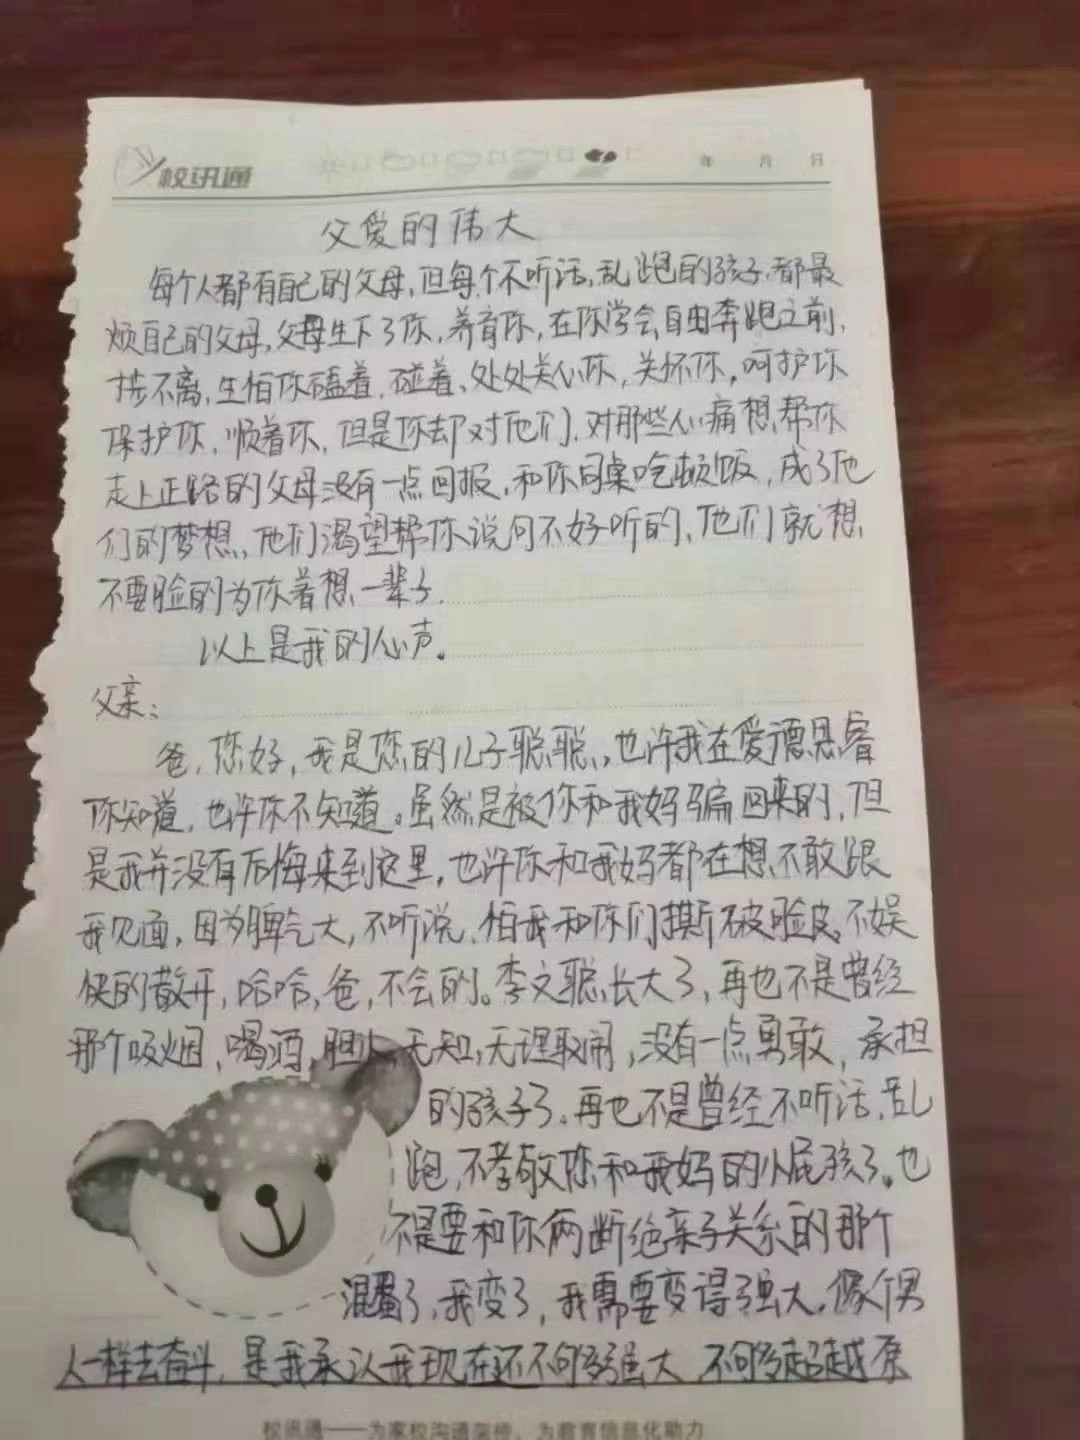 校讯通
年 月 日
父爱的伟大
每个人都有自己的父母,但每个不听话,乱跑的孩子,都最
烦自己的父母,父母生下了你,养育你,在你学会自由奔跑之前,
步不离,生怕你磕着,碰着、处处关心你,关怀你,呵护你
保护你,顺着你,但是你却对他们,对那些心痛想帮你
走上正路的父母没有一点回报,和你同桌吃顿饭,成了他
们的梦想,他们渴望帮你说句不好听的,他们就想
不要脸的为你着想一辈子.
以上是我的心声。
父亲:
爸,您好,我是您的儿子聪聪,也许我在爱德思睿
你知道,也许你不知道。虽然是被你和我妈骗回来的,但
是我并没有后悔来到这里,也许你和我妈都在想不敢跟
我见面,因为脾气大,不听说,怕我和你们撕破脸皮,不娱
快的散开,哈哈,爸,不会的。李文聪长大了,再也不是曾经
那个吸烟,喝酒,胆小,无知,无理取闹,没有一点勇敢,承担
的孩子了。再也不是曾经不听话,乱
跑,不孝敬你和我妈的小屁孩了。也
不是要和你俩断绝亲子关系的那个
混蛋了,我变了,我需要变得强大,像个男
人一样去奋斗,是我承认我现在还不够强大 不够超越原
校讯通——为家校沟通架桥,为教育信息化助力